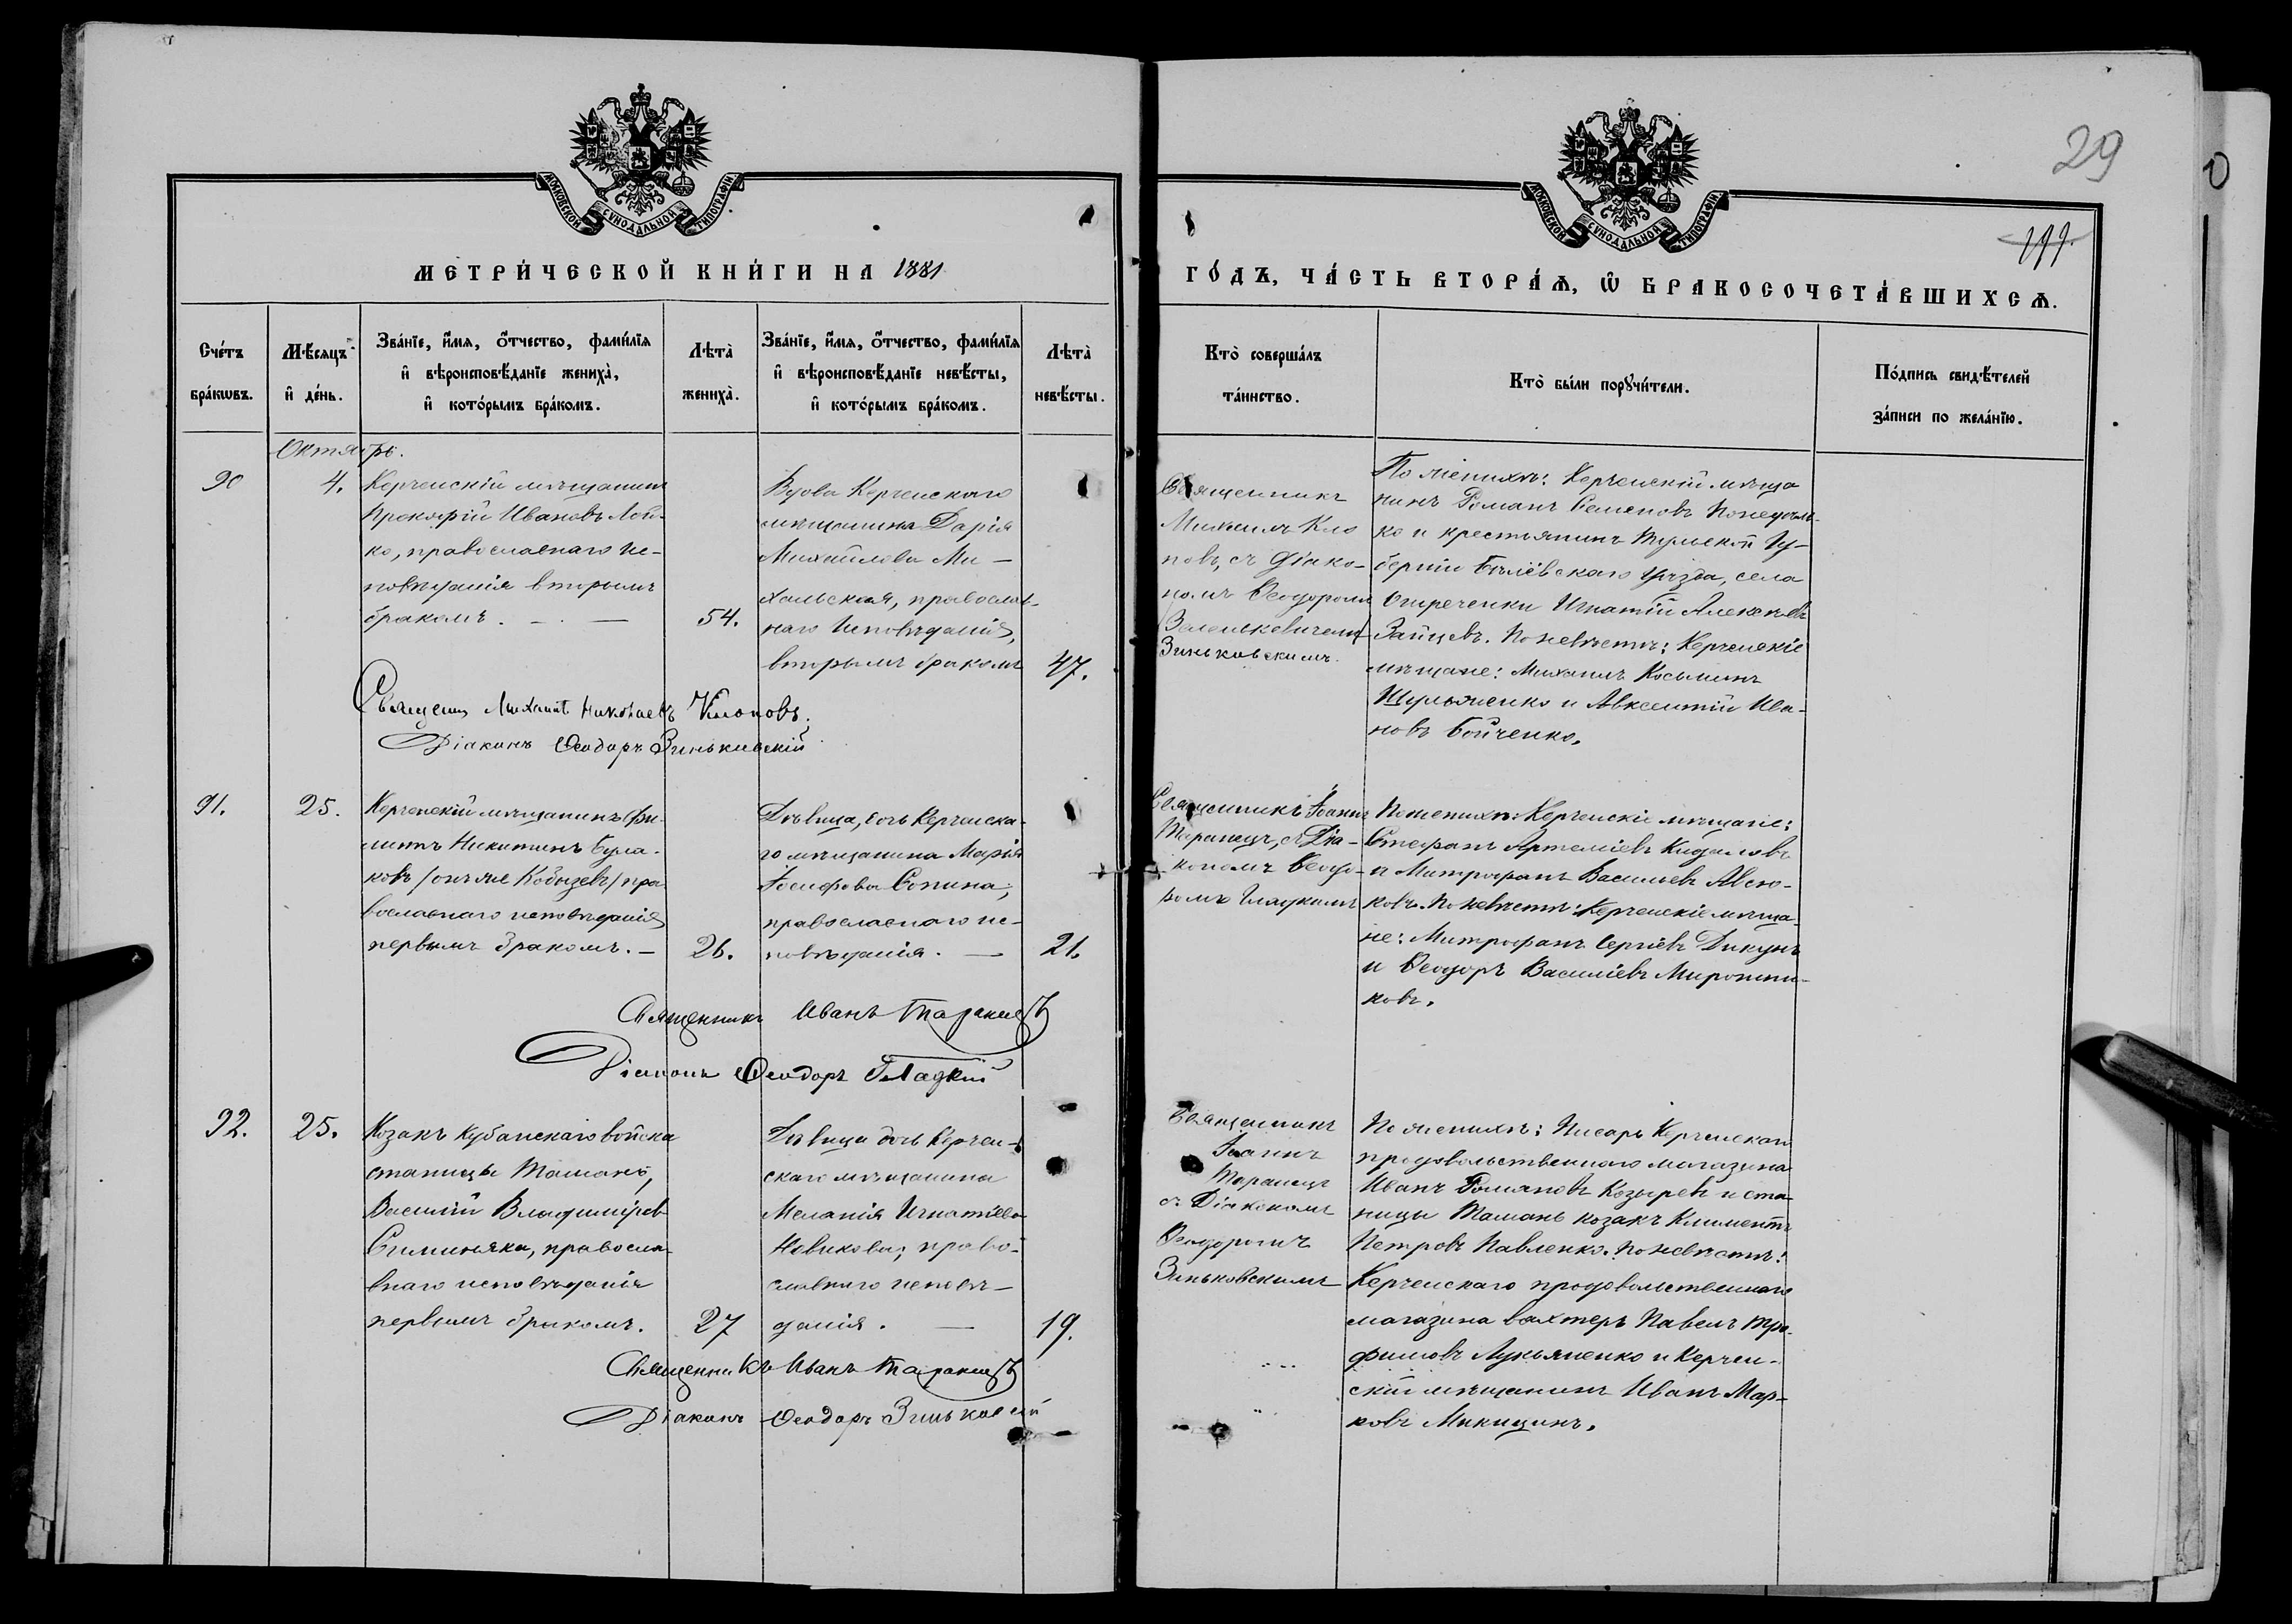 29
199.
МОСКОВСКОЙ СѴНОДАЛЬНОЙ ТИПОГРАФІИ
МОСКОВСКОЙ СѴНОДАЛЬНОЙ ТИПОГРАФІИ
МЕТРИ́ЧЕСКОЙ КНИ́ГИ НА 1881
ГО́ДЪ, ЧА́СТЬ ВТОРА́Ѧ, Ѽ БРАКОСОЧЕТА́ВШИХСѦ.
Сче́тъ
бра́кѡвъ.
Мѣ́сяцъ
и҆ де́нь.
Зва́нїе, и҆́мя, ѻ҆́тчество, фами́лїя
и҆ вѣроисповѣ́данїе жениха̀,
и҆ кото́рымъ бра́комъ.
Лѣта̀
жениха̀.
Зва́нїе, и҆́мя, ѻ҆́тчество, фами́лїя
и҆ вѣроисповѣ́данїе невѣ́сты,
и҆ кото́рымъ бра́комъ.
Лѣта̀
невѣ́сты.
Кто̀ соверша́лъ
та́инство.
Кто̀ бы́ли порꙋчи́тели.
По́дпись свидѣ́телей
за́писи по жела́нїю.
Октябрь.
90
4.
Керченскій мѣщанинъ
Прокофій Ивановъ Лой-
ко, православнаго ис-
повѣданія вторымъ
бракомъ. —
54.
Вдова Керченскаго
мѣщанина Дарія
Михайлова Ми-
хальская, православ-
наго исповѣданія,
вторымъ бракомъ
47.
Священникъ
Михаилъ Кло
повъ, съ Діако-
номъ Ѳеодоромъ
Зиньковскимъ.
По женихѣ: Керченскій мѣща
нинъ Романъ Семеновъ Понедѣль-
ко и крестьянинъ Тульской Гу-
берніи Бѣлёвскаго Уѣзда, села
Игнатій Алексѣевъ
Зайцевъ. По невѣстѣ: Керченскіе
мѣщане: Михаилъ Косьминъ
и Авксентій Ива-
новъ Бойченко.
Священ Михаил Николаевъ Клоповъ.
Діаконъ Ѳеодоръ Зиньковскій
91.
25.
Керченскій мѣщанинъ Фи-
липъ Никитинъ Була-
ковъ /онъ же Кобызевъ/ пра
вославнаго исповѣданія
первымъ бракомъ. —
26.
Дѣвица, дочь Керченска-
го мѣщанина Марія
Іосифова Сопина;
православнаго ис-
повѣданія. —
21.
Священникъ Іоаннъ
Таранецъ, съ Діа-
кономъ Ѳеодо-
ромъ Гладкимъ
По женихѣ: Керченскіе мѣщане:
Стефанъ Артеміевъ Кидаловъ
и Митрофанъ Васильевъ Авсю-
ковъ. По невѣстѣ: Керченскіе мѣща-
не: Митрофанъ Сергіевъ Дикунъ
и Ѳеодоръ Василіевъ Мирошни-
ковъ.
Священникъ Иванъ Таранецъ
Діаконъ Ѳеодоръ Гладкій
92.
25.
Козакъ Кубанскаго войска
станицы Тамань,
Василій Владиміровъ
Симиняка, правосла-
внаго исповѣданія
первымъ бракомъ.
27
Дѣвица дочь Керчен-
скаго мѣщанина
Меланія Игнатіева
Новикова; право-
славнаго исповѣ-
данія. —
19.
Священникъ
Іоаннъ
Таранецъ
съ Діакономъ
Ѳеодоромъ
Зиньковскимъ
По женихѣ: Писарь Керченскаго
продовольственнаго магазина
Иванъ Романовъ Козыревъ и ста-
ницы Тамань козакъ Климентъ
Петровъ Павленко. По невѣстѣ:
Керченскаго продовольственнаго
магазина вахтеръ Павелъ Тро-
фимовъ Лукьяненко и Керчен-
скій мѣщанинъ Иванъ Мар-
ковъ Микицинъ.
Священникъ Иванъ Таранецъ
Діаконъ Ѳеодоръ Зиньковскій